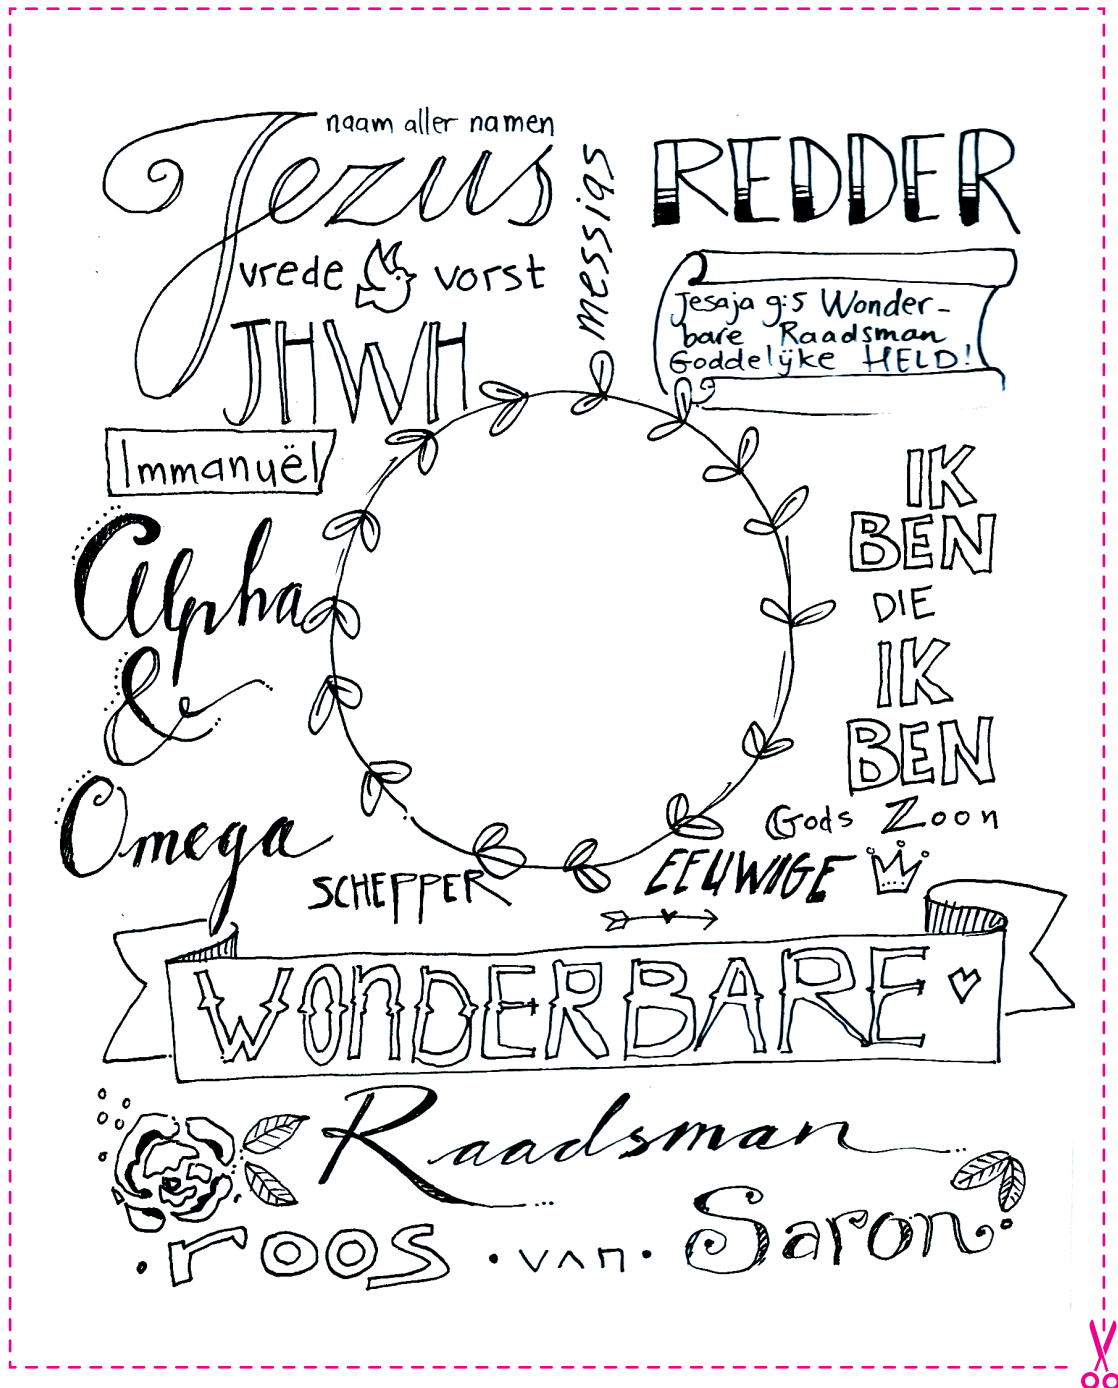 naam aller namen
Jezus
vrede vorst
JHWH
messias
REDDER
Jesaja 9:5 Wonder-
bare Raadsman
Goddelijke HELD!
Immanuël
Alpha
&
Omega
IK
BEN
DIE
IK
BEN
Gods Zoon
SCHEPPER
EEUWIGE
WONDERBARE
Raadsman
roos · van · Saron